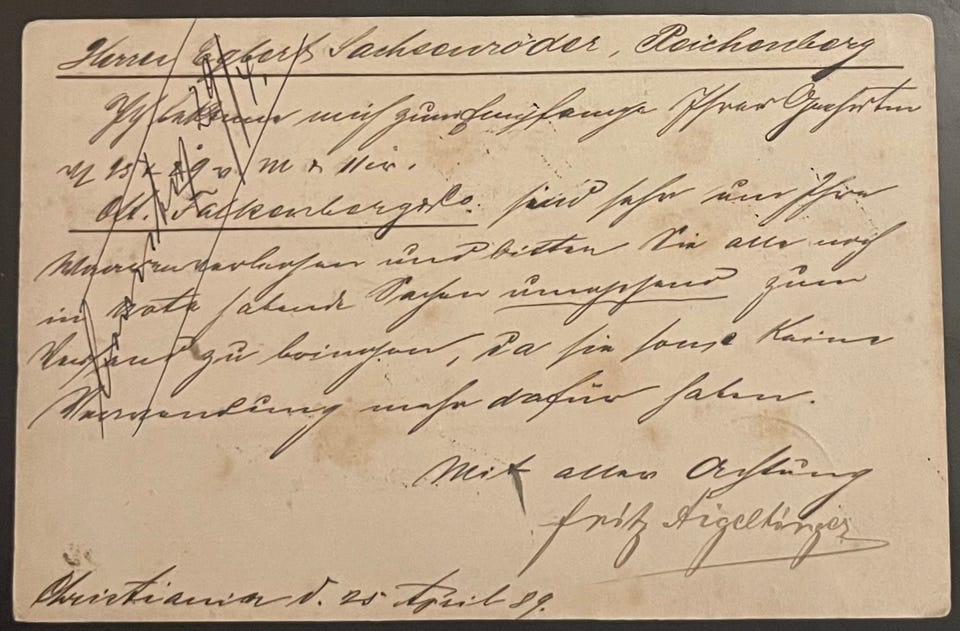 Herrn Egbert Sachsenröder, Reichenberg
Ich bekenne mich zum Empfange Ihrer Geehrten
v. 23 & 29 v. M. & 11 cr.
Ott. Falkenberg & Co. sind sehr um Ihre
Waaren verlegen und bitten Sie alle noch
in Nota habende Sachen umgehend zum
Versand zu bringen, da sie sonst keine
Verwendung mehr dafür haben.
Mit aller Achtung
Fritz Aigeltinger
Christiania d. 25 April 89.
29/4.